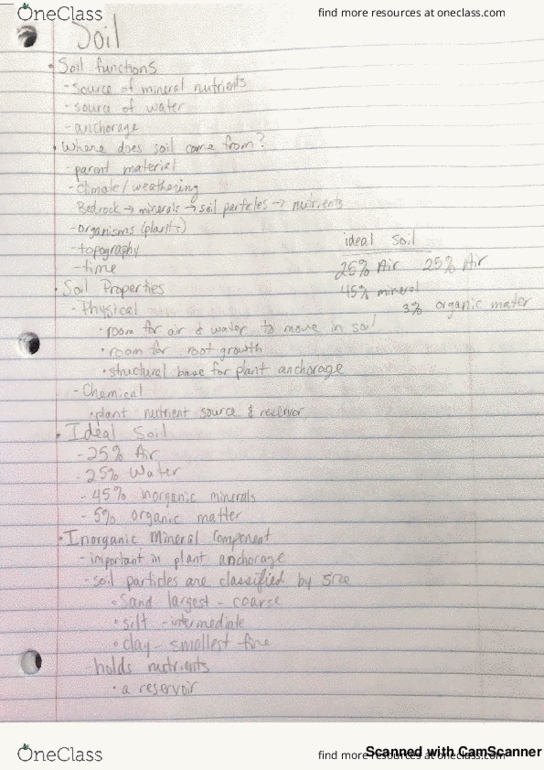 OneClass
find more resources at oneclass.com
Soil
• Soil functions
- source of mineral nutrients
- source of water
- anchorage
• Where does soil come from?
- parent material
- climate/weathering
Bedrock → minerals → soil particles → nutrients
- organisms (plants)
- topography
- time
ideal soil
25% Air 25% Air
45% mineral
3% organic mater
• Soil Properties
- Physical
• room for air & water to move in soil
• room for root growth
• structural base for plant anchorage
- Chemical
• plant nutrient source &
• Ideal Soil
- 25% Air
- 25% Water
- 45% inorganic minerals
- 5% organic matter
• Inorganic Mineral Component
- important in plant anchorage
- soil particles are classified by size
• Sand largest - coarse
• silt - intermediate
• clay - smallest fine
- holds nutrients
• a reservoir
OneClass
find more resources at oneclass.com
Scanned with CamScanner